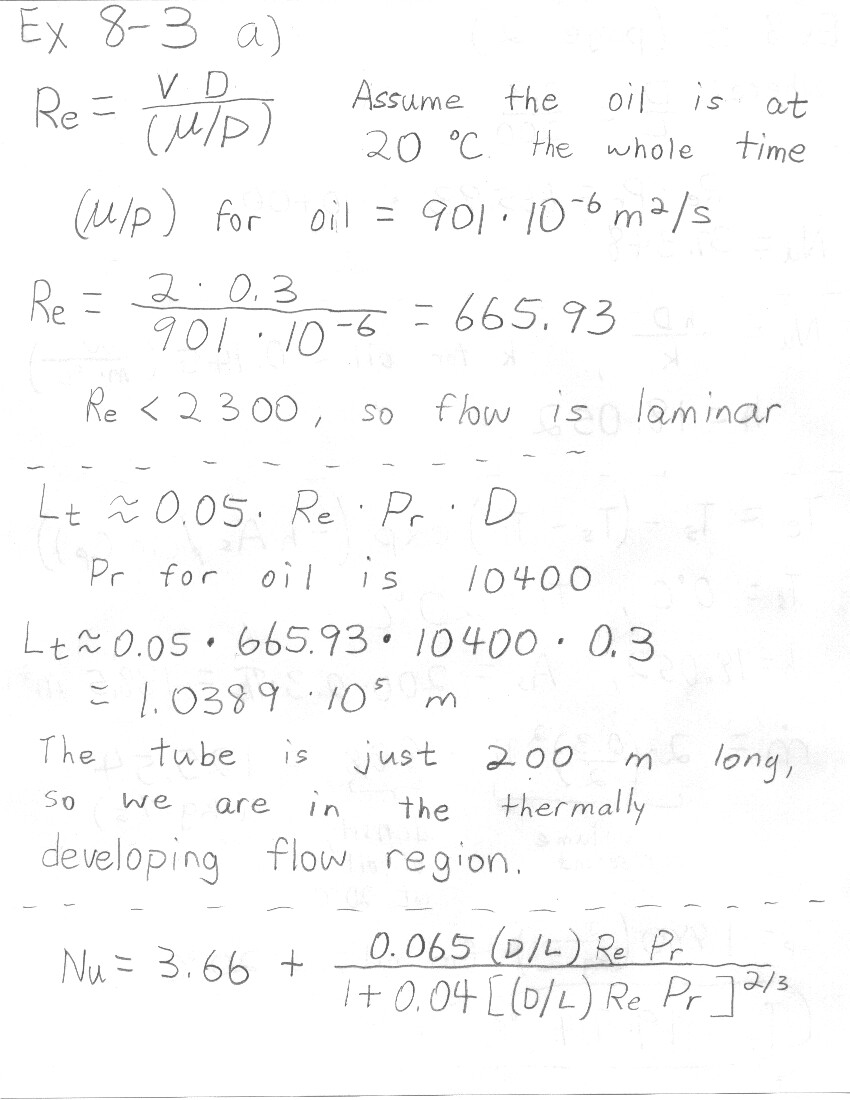 Ex 8-3 a)
Re = V D / (μ/ρ) Assume the oil is at
20 °C the whole time
(μ/ρ) for oil = 901 · 10⁻⁶ m²/s
Re = 2 · 0.3 / 901 · 10⁻⁶ = 665.93
Re < 2300, so flow is laminar
Lt ≈ 0.05 · Re · Pr · D
Pr for oil is 10400
Lt ≈ 0.05 · 665.93 · 10400 · 0.3
= 1.0389 · 10⁵ m
The tube is just 200 m long,
so we are in the thermally
developing flow region.
Nu = 3.66 + 0.065 (D/L) Re Pr / 1 + 0.04 [(D/L) Re Pr]^2/3